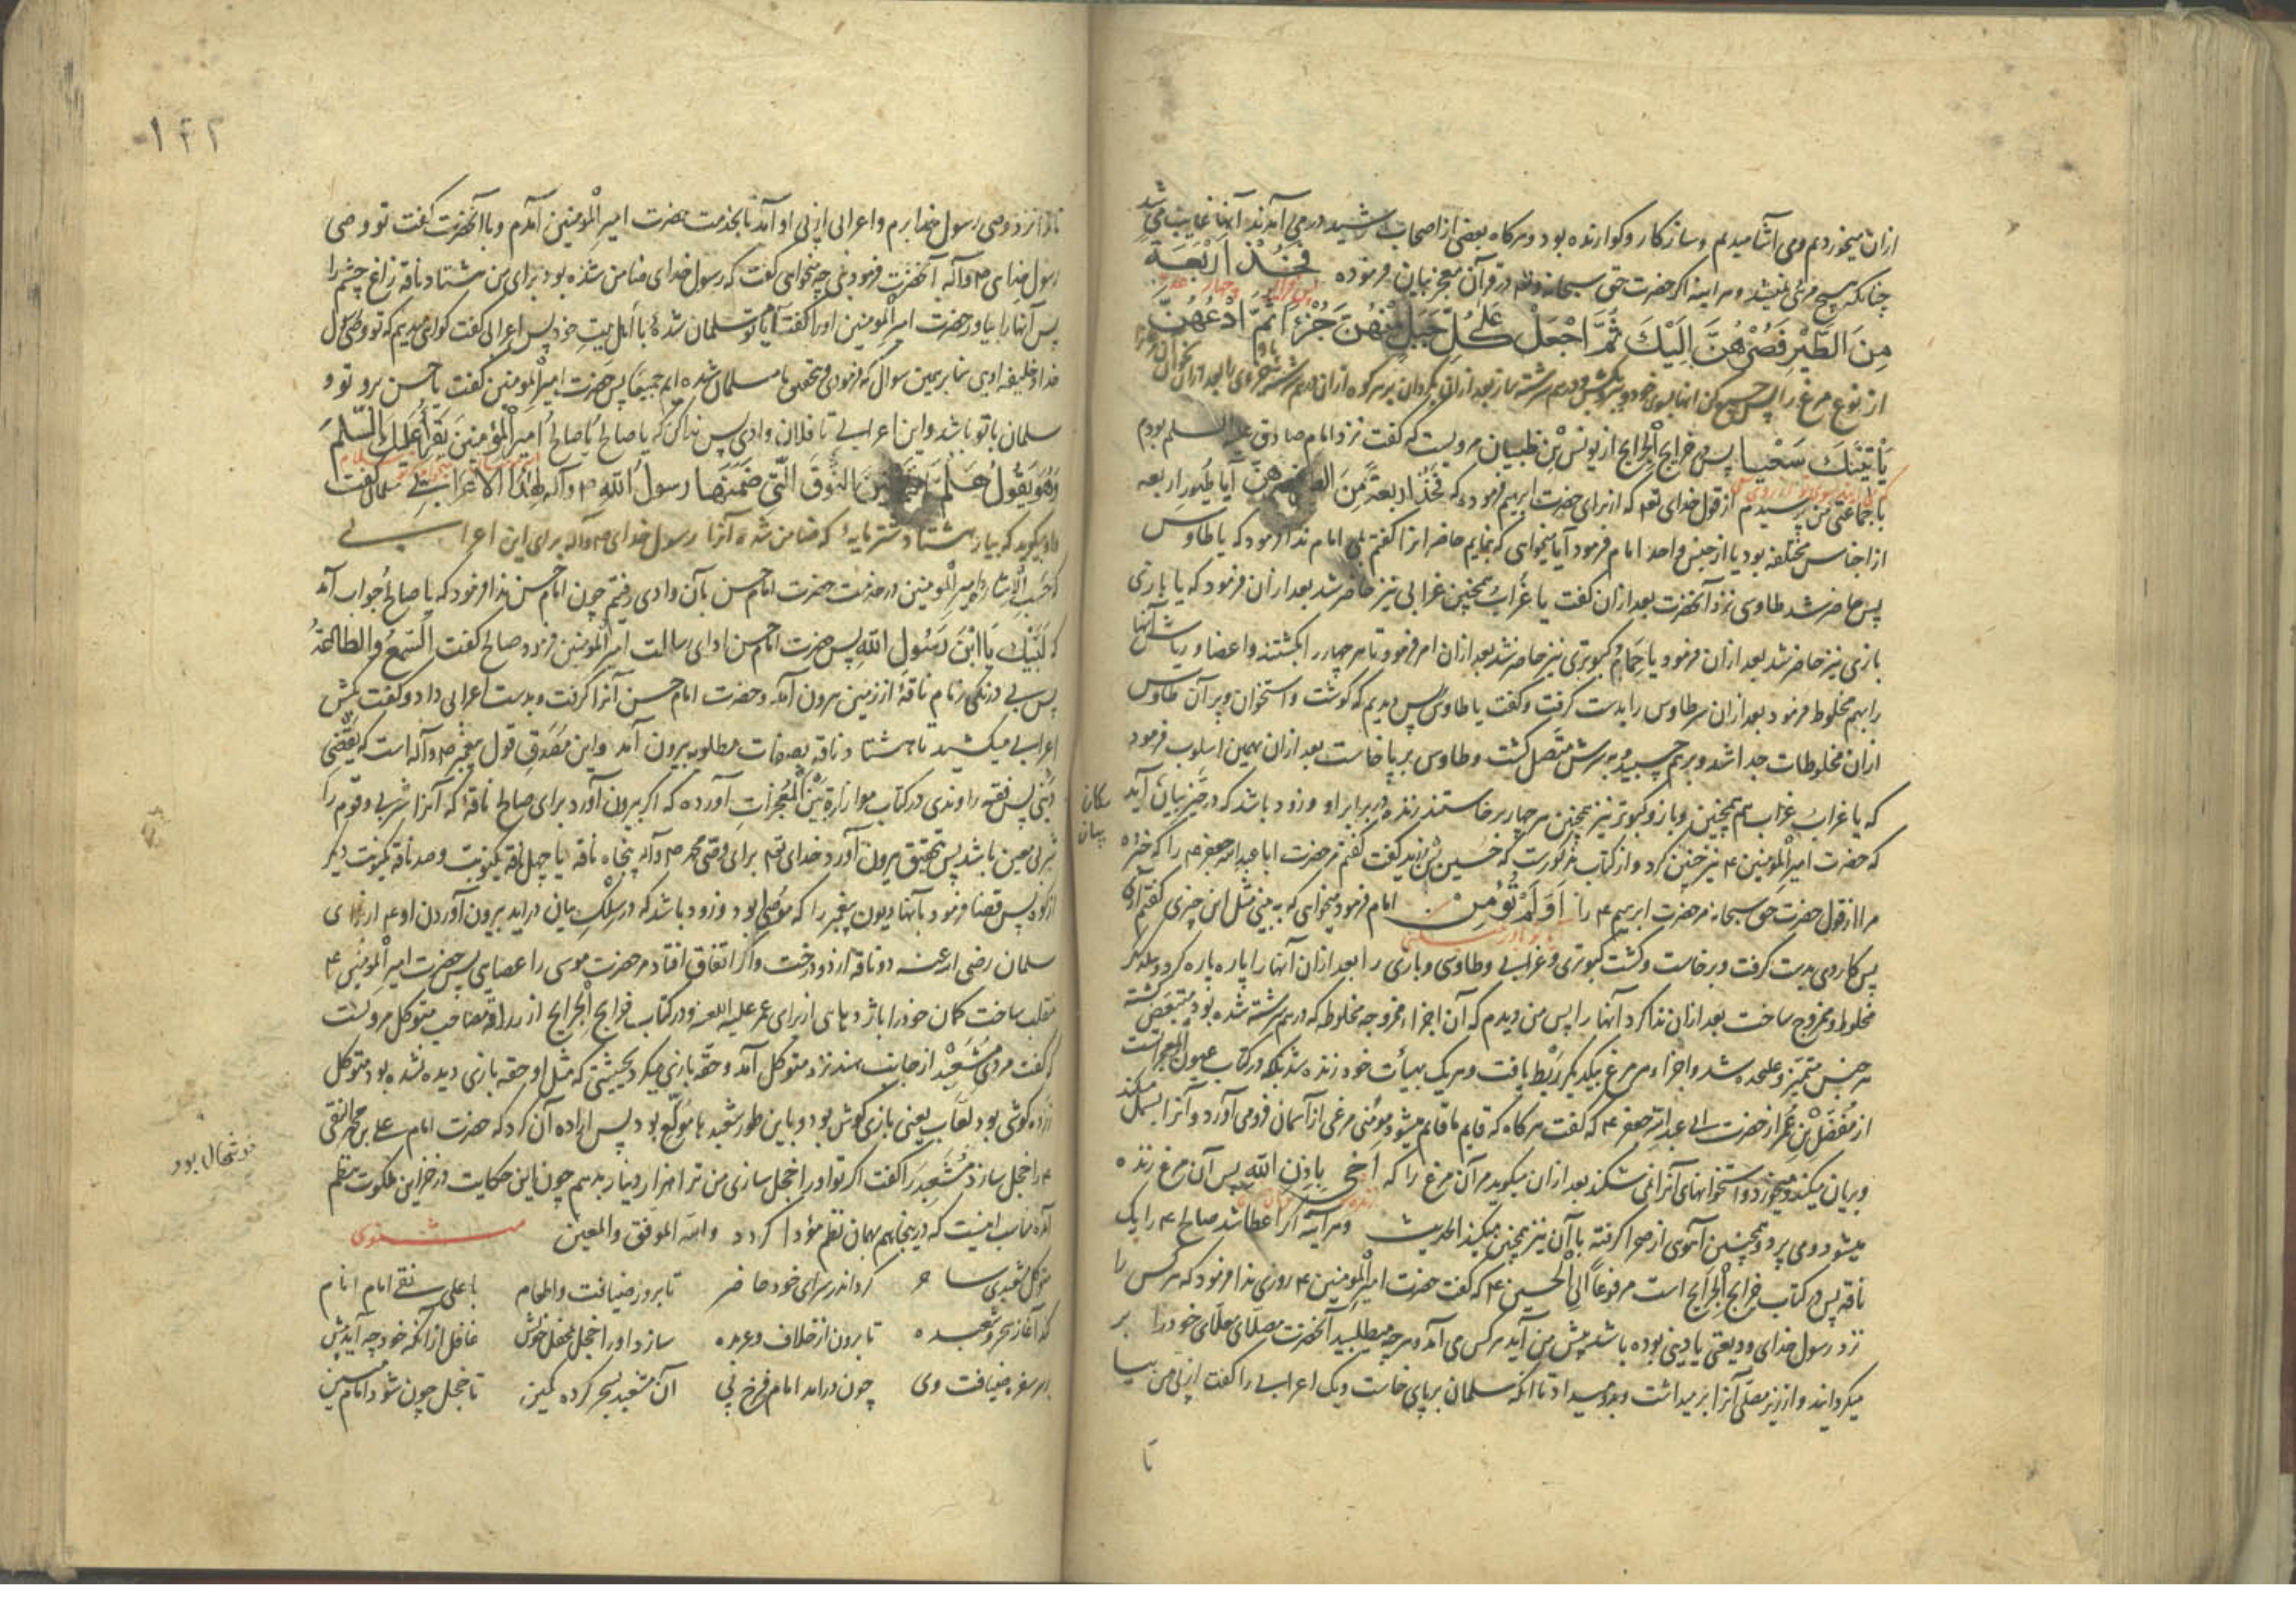 ازان میخوردیم ومی آشامیدیم وسازکار وکوارنده بود وهرکاه بعضی از اصحاب رشید درمی آمدند آنها غایب می شد
چنانکه هیچ مرئی نمیشد وهراینه اکر حضرت حق سبحانه وتع در قرآن معجز بیان فرموده فَخُذْ اَرْبَعَةً
مِنَ الطَّیْرِ فَصُرْهُنَّ اِلَیْكَ ثُمَّ اجْعَلْ عَلٰی کُلِّ جَبَلٍ مِنْهُنَّ جُزْءًا ثُمَّ ادْعُهُنَّ
از نوع مرغ را پس جمع کن آنها بسوی خود وبکش ودرهم سرشته ساز بعد ازان بکردان بر هر کوه ازان درهم سرشته جزوی را بعد ازان بخوان
یَأْتِینَكَ سَعْیًا پس در خرایج الجرایح از یونس بْنِ ظبیان مرویست که گفت نزد امام صادق علیه السلم بودم
با جماعتی من پرسیدم از قول خدای تع که از برای حضرت ابرهیم فرموده که فَخُذْ اَربعةً مِنَ الطیر فصرهنّ آیا طُیورِ اربعه
از اجناس مختلفه بود یا از جنس واحد امام فرمود آیا میخواهی که بنمایم حاضرانرا کفتم بلی امام ندا فرمود که یا طاوس
پس حاضر شد طاوسی نزد آنحضرت بعد ازان کفت یا غُرابُ همچنین غرابی نیز حاضر شد بعد ازان فرمود که یا بازی
بازی نیز حاضر شد بعد ازان فرمود یا حَمَامُ کبوتری نیز حاضر شد بعد ازان امر فرمود تا هر چهار را بکشتند واعضا و ریاش آنها
را بهم مخلوط فرمود بعد ازان سر طاوس را بدست کرفت وکفت یا طاوس پس دیدیم که کوشت واستخوان وپر آن طاوس
ازان مخلوطات جدا شد وبرهم چسبید وبه سرش متّصل کشت وطاوس بر پا خاست بعد ازان بهمین اسلوب فرمود
که یا غراب غراب هم همچنین وباز وکبوتر نیز همچنین هر چهار برخاستند زنده در برابر او وزود باشد که در حیّز بیان آید
که حضرت امیر المؤمنین ۴ نیز چنین کرد واز کتاب مذکورست که حسین بْنِ زید کفت کفتم مر حضرت ابا عبد الله جعفر ۴ را که خبر ده
مرا از قول حضرت حق سبحانه مر حضرت ابرهیم ۴ را اَوَلَمْ تُؤْمِنْ امام فرمود میخواهی که به بینی مثل این چیزی کفتم آری
پس کاردی بدست کرفت وبرخاست وکشت کبوتری وغرابی وطاوسی وبازی را بعد ازان آنها را پاره پاره کرد وبیکدیکر
مخلوط وممزوج ساخت بعد ازان ندا کرد آنها را پس من دیدم که آن اجزاء ممزوجه مخلوطه که درهم سرشته شده بود متبعّض کشته
هر جنس متمیّز وعلیحده شد واجزاء هر مرغ بیکدیکر رَبْط یافت وهریک بهیأت خود زنده شد بلکه در کتاب عیون المعجزاتست
از مُفَضَّلْ بْنِ عُمَر از حضرت ابی عبد الله جعفر ۴ که کفت هرکاه که قایم ما قائم میشود مؤمنی مرغی از آسمان فرو می آورد وآنرا بسمل میکند
وبریان میکند ومیخورد واستخوانهای آنرا نمی شکند بعد ازان میکوید مر آن مرغ را که اُحْیِ بِاِذنِ اللهِ پس آن مرغ زنده
میشود ومی پرد وهمچنین آهوی از صحرا کرفته با آن نیز همچنین میکند الحدیث وهرآینه اکر عطا شد صالح ۴ را یک
ناقه پس در کتاب خرایج الجرایح است مرفوعاً الی الحسین ۴ که کفت حضرت امیر المؤمنین ۴ روزی ندا فرمود که هر کس را
نزد رسول خدای ودیعتی یا دینی بوده باشد پیش من آید هر کس می آمد وهرچه میطلبید آنحضرت مصلّای معلّای خود را بر
میکردانید واز زیر مصلّی آنرا برمیداشت وبدو میداد تا آنکه سلمان بر پای خاست ویک اعرابی را کفت از پی من بیا
تا
۱۴۲
رسول خدا ص وآله آنحضرت فرمود بلی چه میخواهی کفت که رسول خدای ضامن شده بود برای من هشتاد ناقه زاغ چشم را
پس آنها را بیاور حضرت امیر المؤمنین اورا کفت آیا تو مسلمان شدهٔ با اهل بیت خود پس اعرابی کفت کواهی میدهم که تو وصی رسول
خدا وخلیفه اویی بنا بر همین سوال که فرمودی وبتحقیق ما مسلمان شده ایم جمیعًا پس حضرت امیر المؤمنین کفت یا حسن برو تو و
سلمان با تو باشد واین اعرابی تا فلان وادی پس ندا کن که یا صالحُ یا صالحُ اَمیرَ الْمُؤمِنینَ یَقرَأُ عَلَیْكَ السَّلَمَ
وَهُوَ یَقُولُ هَلُمَّ الثَّمَانِینَ النُّوقَ الَّتِی ضَمَنَها رسولُ اللهِ ص وآله لِهٰذَا الاَعْرابی سلمان کفت
واو میکوید که بیار هشتاد شتر مایه که ضامن شده آنرا رسول خدای ص وآله برای این اعرابی
که حَسَبَ الاشاره امیر المؤمنین در خدمت حضرت امام حسن بآن وادی رفتیم چون امام حسن ندا فرمود که یا صالحُ جواب آمد
که لَبَّیْكَ یَا ابْنَ رَسُولِ اللهِ پس حضرت امام حسن ادای رسالت امیر المؤمنین فرمود صالح کفت اَلسَّمعُ والطاعَةُ
پس بی درنکی زمام ناقهٔ از زمین برون آمد وحضرت امام حسن آنرا کرفت وبدست اعرابی داد وکفت بکش
اعرابی میکشید تا هشتاد ناقه بصفات مطلوبه بیرون آمد واین مصدّق قول پیغمبر ص وآله است که یَقْضی
دَیْنی پس فقیه راوندی در کتاب موازاة بَیْنَ الْمُعْجزات آورده که اکر بیرون آورد برای صالح ناقهٔ که آنرا شربی وقوم را
شربی معین باشد پس بتحقیق بیرون آورد خدای تع برای وصی محمد ص وآله پنجاه ناقه یا چهل ناقه یکنوبت وصد ناقه یکنوبت دیکر
از کوه پس قضا فرمود بآنها دیون پیغمبر را که موصی بود وزود باشد که در سِلْكِ بیان دراید بیرون آوردن او ۴ از برای
سلمان رضی الله عنه دو ناقه از دو درخت واکر اتفاق افتاد مر حضرت موسی را عصایی پس حضرت امیر المؤمنین ۴
منقلب ساخت کمان خود را باژدهای از برای عمر علیه اللعنه ودر کتاب خرایج الجرایح از زرافه مصاحب متوکل مرویست
که کفت مردی مُشَعْبِدْ از جانب هند نزد متوکل آمد وحقه بازی میکرد بحیثیتی که مثل او حقه بازی دیده نشده بود متوکل
بود لعّاب یعنی بازی کوش بود وباین طور شعبدها مولع بود پس اراده آن کرد که حضرت امام علی بن محمد النقی
۴ را خجل سازد مُشَعْبِد را کفت اکر تو اورا خجل سازی من ترا هزار دینار بدهم چون این حکایت در خزاین ملکوت بنظم
آمده مناسب اینست که درینجا هم بهمان نظم مؤدا کردد والله الموفق والمعین مثنوی
متوکل شعبدی ساحر کرد اندر سرای خود حاضر تا بروز ضیافت واطعام با علی نقی امام انام
کند آغاز سحر وشعبده تا برون از خلاف وعربده سازد اورا خجل بمحفل خویش غافل از آنکه خود چه آیدش پیش
بر سر سفره ضیافت وی چون درامد امام فرخ پی آن مشعبد بسحر کرده کمین تا خجل چون شود امام مبین
خوشحال بود